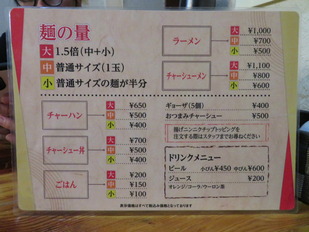 麺の量
大 1.5倍(中+小)
中 普通サイズ(1玉)
小 普通サイズの麺が半分
チャーハン
大 ¥650
中 ¥500
小 ¥400
チャーシュー丼
大 ¥700
中 ¥500
小 ¥400
ごはん
大 ¥200
中 ¥150
小 ¥100
ラーメン
大 ¥1,000
中 ¥700
小 ¥500
チャーシューメン
大 ¥1,100
中 ¥800
小 ¥600
ギョーザ(5個) ¥400
おつまみチャーシュー ¥500
揚げニンニクチップトッピングを
注文する際はスタッフまでお尋ねください
ドリンクメニュー
ビール 小びん¥450 中びん¥600
ジュース ¥200
オレンジ/コーラ/ウーロン茶
表示価格はすべて税込み価格となっております